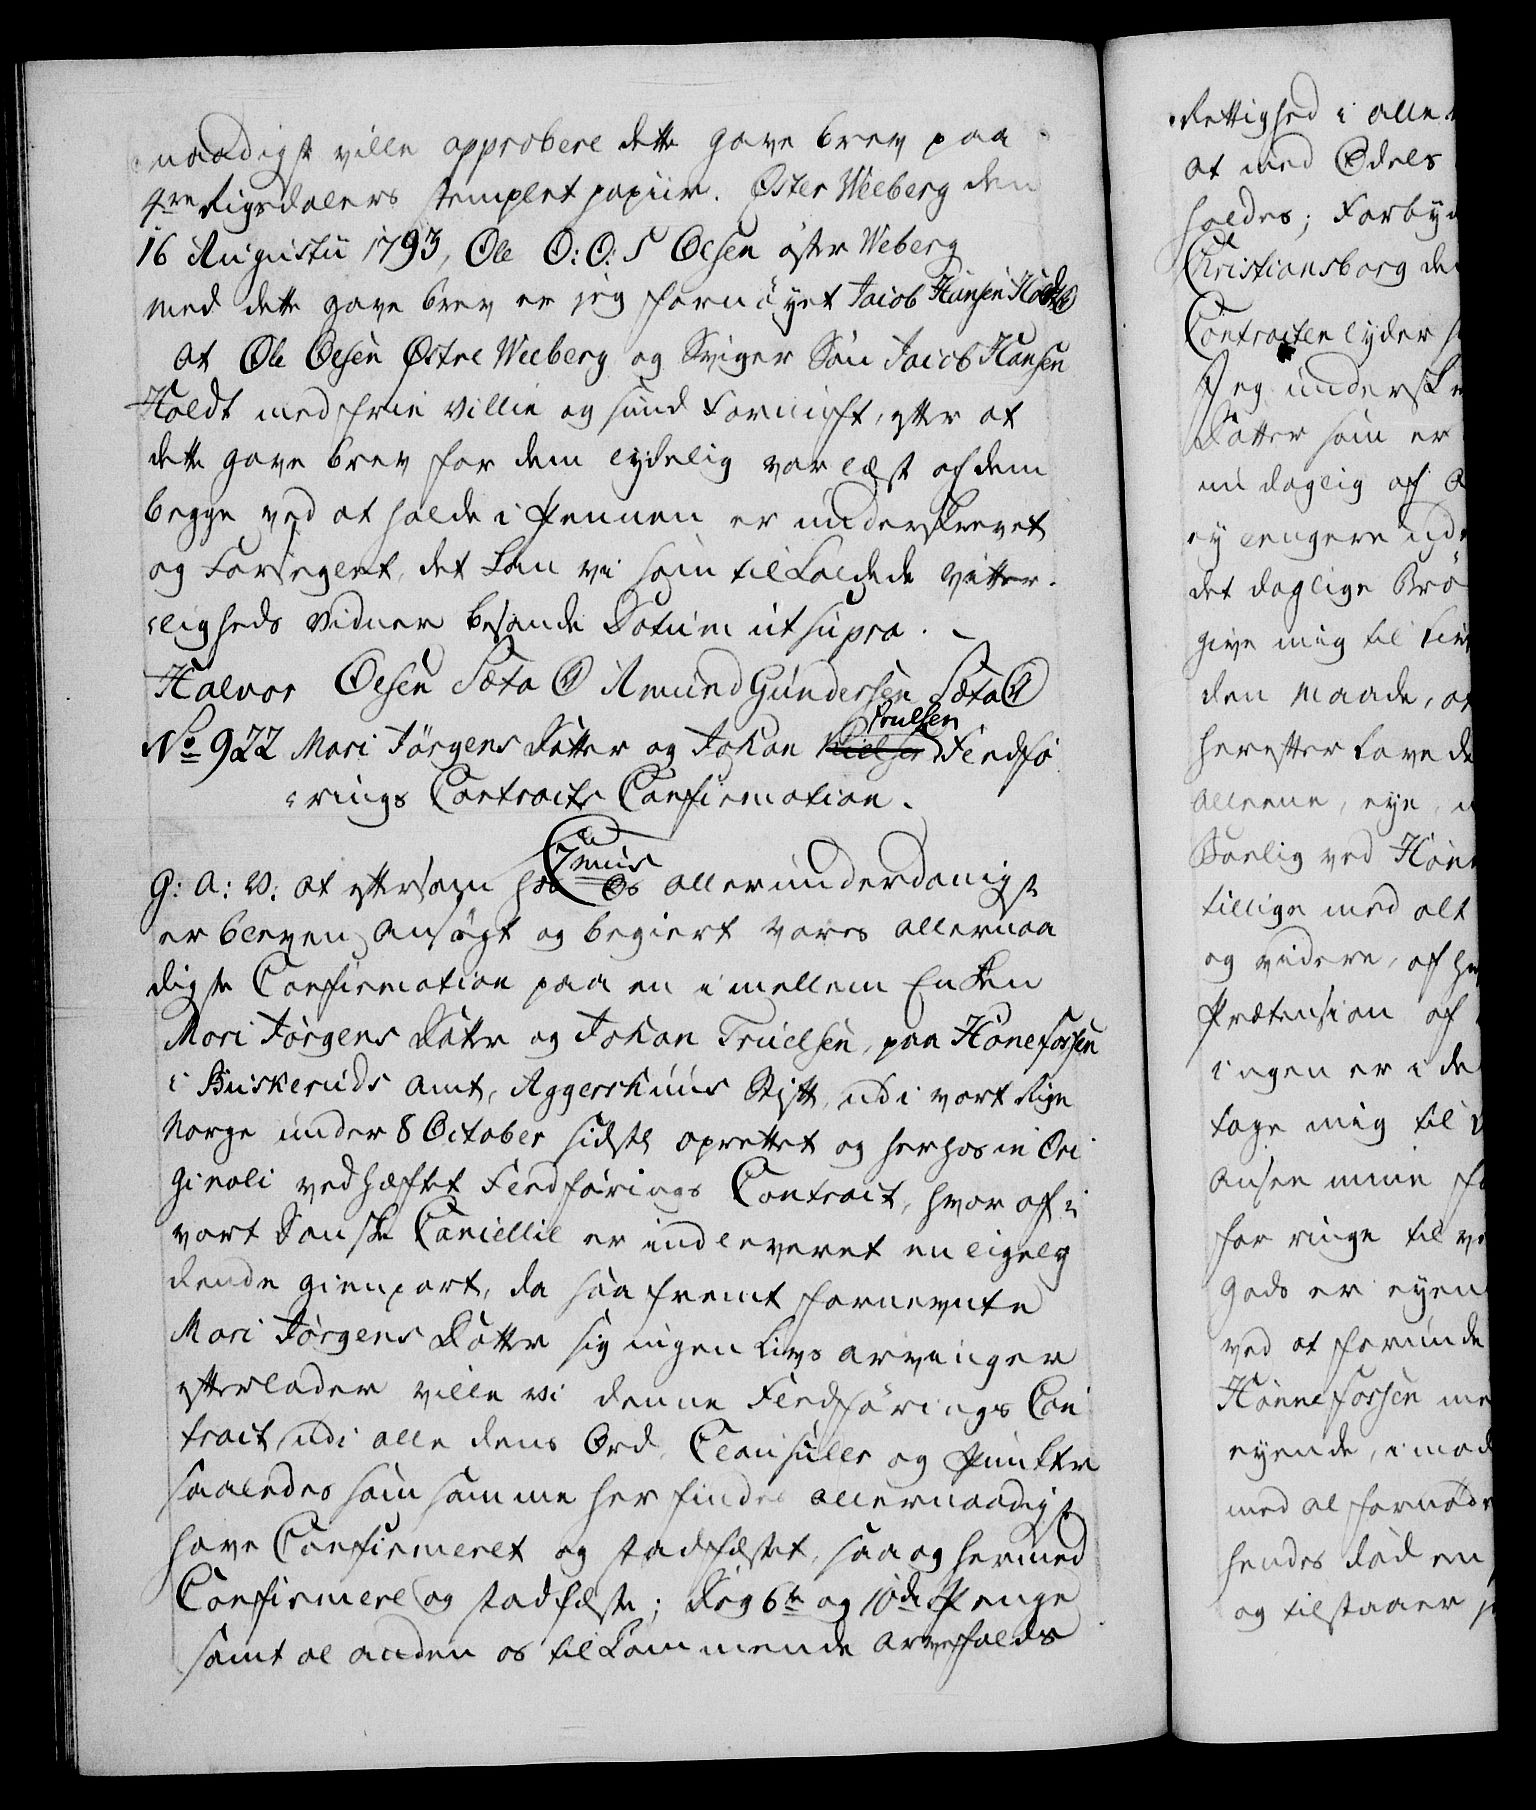 naadigst ville approbere dette gave brev paa
4re Rigsdalers stemplet papiir. Øster Weeberg den
16 Augustii 1793, Ole O: O: S Olsen öster Weberg
med dette gave brev er jeg fornöyet Jacob Hansen Holdt
at Ole Olsen Østre Weeberg og Sviger Søn Jacob Hansen
Holdt med frie villie og sund Fornuft, efter at
dette gave brev for dem lydelig var læst af dem
begge ved at holde i Pennen er underskrevet
og Forseglet, det kan vi som tilkaldede vitter-
ligheds Vidner besande Datum ut supra.
Halvor Olsen Sæta Amund Gundersen Sæta
No 922 Mari Jörgens Datter og Johan Trulsen Fledfö
rings Contracts Confirmation.
7mus
G: A: V: at eftersom hos Os allerunderdanigst
er bleven ansögt og begiert vores allernaa
digste Confirmation paa en imellem Enken
Mari Jörgens Datter og Johan Truelsen, paa Hönefossen
i Buskeruds Amt, Aggershuus Stift, udi vort Rige
Norge under 8 October sidste oprettet og herhos in Ori
ginali vedhæftet Fledförings Contract, hvor af i
vort Danske Cancellie er indleveret en ligely
dende gienpart, da saafremt fornevnte
Mari Jörgens Datter sig ingen Livs arvinger
efterlader ville Vi denne Fledförings Con
tract, udi alle dens Ord, Clausuler og Puncter
saaledes som samme her findes allernaadigst
have Confirmeret og stadfæstet, saa og hermed
Confirmere og stadfæste; Dog 6te og 10de Penge
samt al anden os tilkommende Arvefalds
Rettighed i alle
at med Odels
holdes; Forbyd
Christiansborg de
Contracten lyder
Jeg undersk
Datter som er
nu daglig af
ey lengere ud
det daglige Brö
give mig til
den Maade, at
herefter have de
alleene, eye,
Boelig ved Hön
tillige med alt
og videre, af
Prætension af
ingen er i de
tage mig til
ansee min
for ringe til
gods er eyen
ved at forunde
Hönnefossen me
eyende, imod
med al fornöd
hendes död en
og tilstaaer